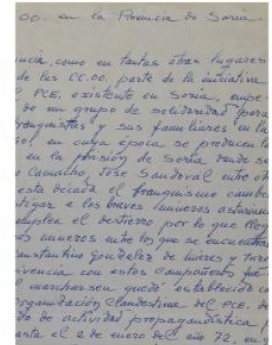 OO. en la Provincia de Soria.
incia, como en tantas otras lugares
de las CC.OO. parte de la iniciativa
PCE. existente en Soria, empe
de un grupo de solidaridad para
franquistas y sus familiares en la
en cuya epoca se producen la
en la prision de Soria donde se
o Camacho, José Sandoval entre ot
esta decada el franquismo cambe
tigar a los bravos mineros asturian
emplea el destierro, por lo que lleg
os mineros entre los que se encuentra
onstantino Gonzalez de Mieres y
ivencia con estos compañeros que
marcharsen quedó establecido co
organización clandestina del PCE. de
do de actividad propagandistica
asta el 2 de enero del año 72, en